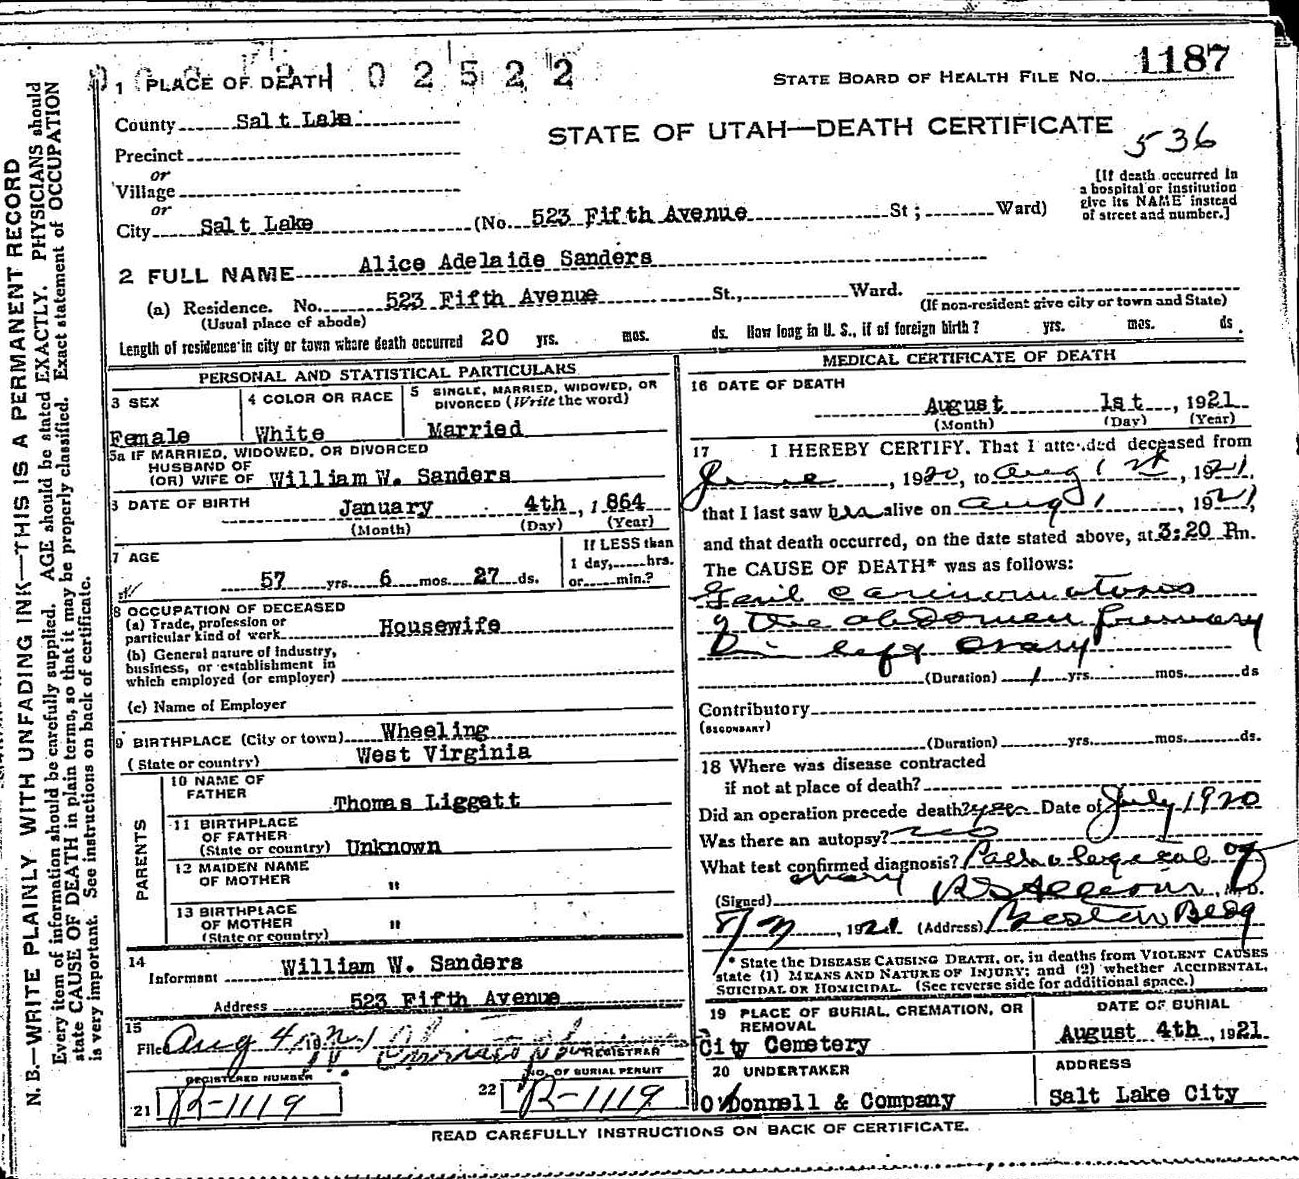 N. B.—WRITE PLAINLY WITH UNFADING INK—THIS IS A PERMANENT RECORD
Every item of information should be carefully supplied. AGE should be stated EXACTLY. PHYSICIANS should
state CAUSE OF DEATH in plain terms, so that it may be properly classified. Exact statement of OCCUPATION
is very important. See instructions on back of certificate.
2 1 0 2 5 2 2
1 PLACE OF DEATH
STATE BOARD OF HEALTH FILE NO. 1187
County Salt Lake
STATE OF UTAH—DEATH CERTIFICATE
536
Precinct
or
Village
or
City Salt Lake (No. 523 Fifth Avenue St; Ward)
[If death occurred in
a hospital or institution
give its NAME instead
of street and number.]
2 FULL NAME Alice Adelaide Sanders
(a) Residence. No. 523 Fifth Avenue St., Ward.
(Usual place of abode)
(If non-resident give city or town and State)
Length of residence in city or town where death occurred 20 yrs. mos. ds. How long in U. S., if of foreign birth? yrs. mos. ds.
PERSONAL AND STATISTICAL PARTICULARS
3 SEX
Female
4 COLOR OR RACE
White
5 SINGLE, MARRIED, WIDOWED, OR
DIVORCED (Write the word)
Married
5a IF MARRIED, WIDOWED, OR DIVORCED
HUSBAND OF
(OR) WIFE OF William W. Sanders
6 DATE OF BIRTH January 4th, 1864
(Month) (Day) (Year)
7 AGE
57 yrs. 6 mos. 27 ds.
If LESS than
1 day, hrs.
or min.?
8 OCCUPATION OF DECEASED
(a) Trade, profession or
particular kind of work Housewife
(b) General nature of industry,
business, or establishment in
which employed (or employer)
(c) Name of Employer
9 BIRTHPLACE (City or town) Wheeling
(State or country) West Virginia
PARENTS
10 NAME OF
FATHER Thomas Liggett
11 BIRTHPLACE
OF FATHER
(State or country) Unknown
12 MAIDEN NAME
OF MOTHER "
13 BIRTHPLACE
OF MOTHER "
(State or country)
14
Informant William W. Sanders
Address 523 Fifth Avenue
15
Filed Aug 4
REGISTRAR
REGISTERED NUMBER
21 R-1119
NO. OF BURIAL PERMIT
22 R-1119
MEDICAL CERTIFICATE OF DEATH
16 DATE OF DEATH
August 1st, 1921
(Month) (Day) (Year)
17 I HEREBY CERTIFY, That I attended deceased from
June, 1920, to Aug 1st, 1921,
that I last saw her alive on Aug 1, 1921,
and that death occurred, on the date stated above, at 3:20 Pm.
The CAUSE OF DEATH* was as follows:
Genl Carcinomatosis
of the abdomen primary
in left ovary
(Duration) 1 yrs. mos. ds
Contributory
(SECONDARY)
(Duration) yrs. mos. ds.
18 Where was disease contracted
if not at place of death?
Did an operation precede death? yes Date of July 1920
Was there an autopsy? no
What test confirmed diagnosis? Pathological of
ovary
(Signed) M.D.
1921 (Address) Boston Bldg
* State the DISEASE CAUSING DEATH, or, in deaths from VIOLENT CAUSES
state (1) MEANS AND NATURE OF INJURY; and (2) whether ACCIDENTAL,
SUICIDAL OR HOMICIDAL. (See reverse side for additional space.)
19 PLACE OF BURIAL, CREMATION, OR
REMOVAL
City Cemetery
DATE OF BURIAL
August 4th, 1921.
20 UNDERTAKER
O'Donnell & Company
ADDRESS
Salt Lake City
READ CAREFULLY INSTRUCTIONS ON BACK OF CERTIFICATE.